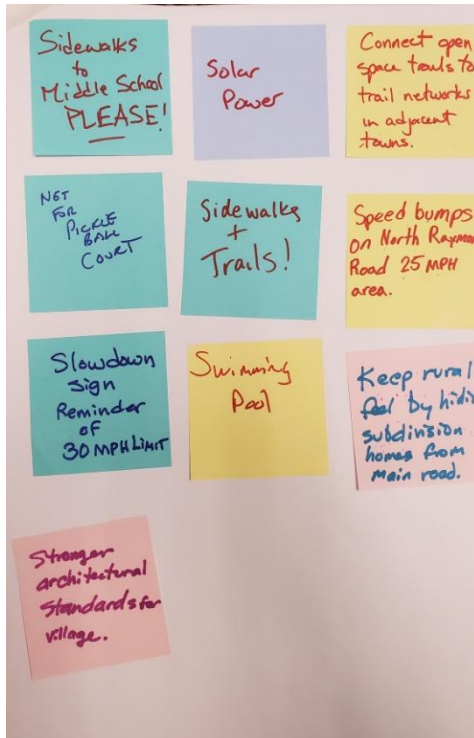 Sidewalks
to
Middle School
PLEASE!
Solar
Power
Connect open
space trails to
trail networks
in adjacent
towns.
NET
FOR
PICKLE
BALL
COURT
Sidewalks
+
Trails!
Speed bumps
on North
Road 25 MPH
area.
Slowdown
sign
Reminder
of
30 MPH LIMIT
Swimming
Pool
Keep rural
feel by
subdivision
homes from
main road.
Stronger
architectural
standards for
village.